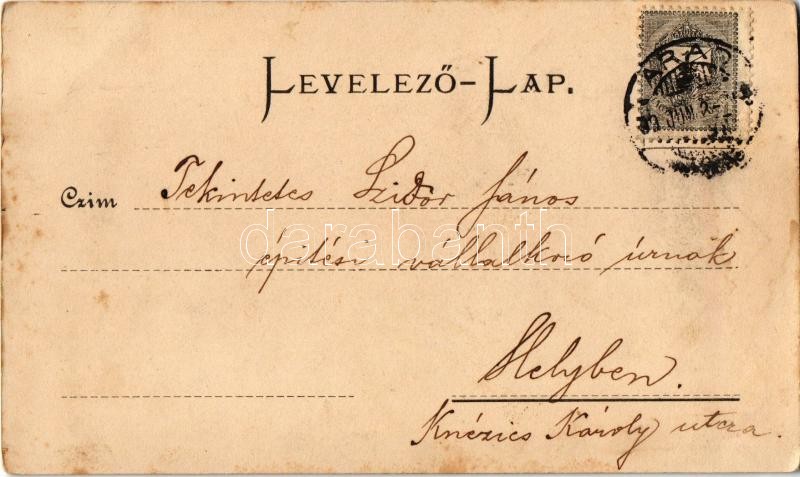 LEVELEZŐ-LAP.
ARAD
JUN
Czim Tekintetes Szidor János
épitési vállalkozó úrnak
darabanth
Helyben.
Knézics Károly utcza.